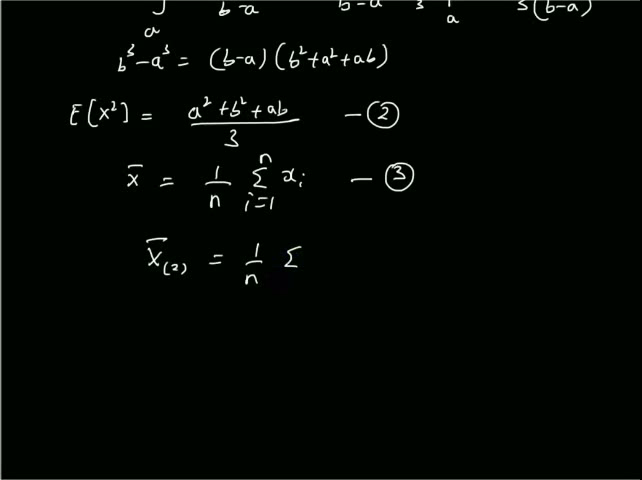 ∫ₐ b-a b-a 3 a 3(b-a)
b³-a³ = (b-a)(b²+a²+ab)
E[X²] = (a²+b²+ab)/3 —②
x̄ = 1/n Σ_{i=1}^{n} xᵢ —③
X̄₍₂₎ = 1/n Σ